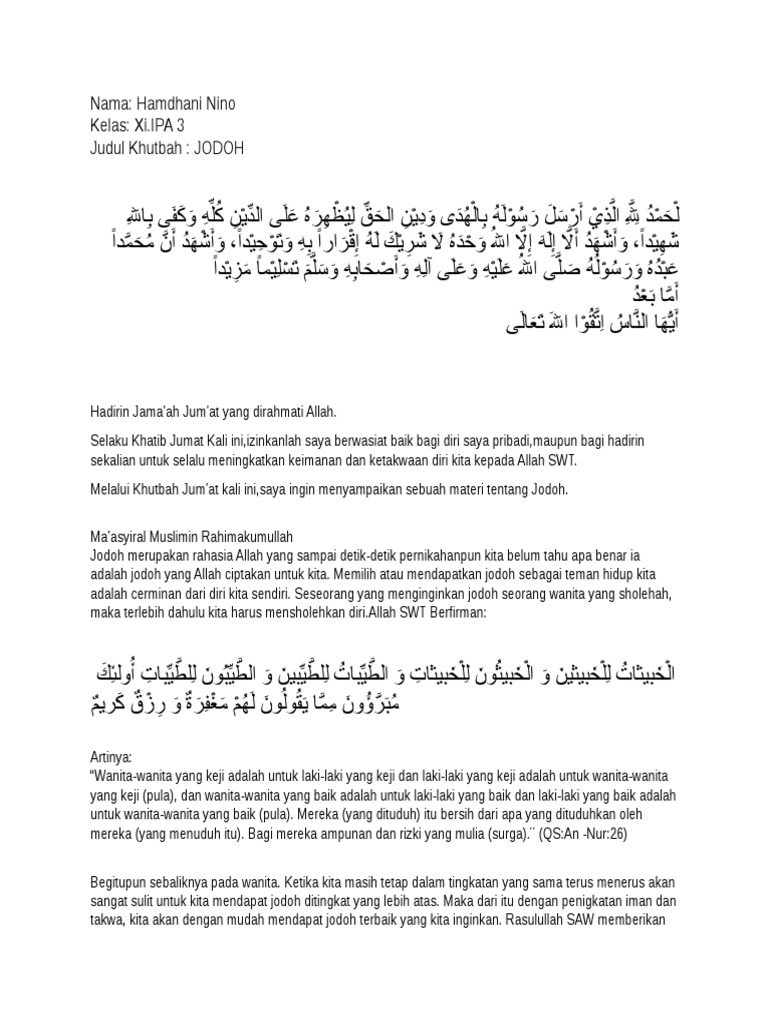 Nama: Hamdhani Nino
Kelas: Xi.IPA 3
Judul Khutbah : JODOH
لْحَمْدُ لِلَّهِ الَّذِيْ أَرْسَلَ رَسُوْلَهُ بِالْهُدَى وَدِيْنِ الحَقِّ لِيُظْهِرَهُ عَلَى الدِّيْنِ كُلِّهِ وَكَفَى بِاللهِ
شَهِيْداً، وَأَشْهَدُ أَلَّا إِلَهَ إِلَّا اللهُ وَحْدَهُ لَا شَرِيْكَ لَهُ إِقْرَاراً بِهِ وَتَوْحِيْداً، وَأَشْهَدُ أَنَّ مُحَمَّداً
عَبْدُهُ وَرَسُوْلُهُ صَلَّى اللهُ عَلَيْهِ وَعَلَى آلِهِ وَأَصْحَابِهِ وَسَلَّمَ تَسْلِيْماً مَزِيْداً
أَمَّا بَعْدُ
أَيُّهَا النَّاسُ اِتَّقُوْا اللهَ تَعَالَى
Hadirin Jama'ah Jum'at yang dirahmati Allah.
Selaku Khatib Jumat Kali ini,izinkanlah saya berwasiat baik bagi diri saya pribadi,maupun bagi hadirin
sekalian untuk selalu meningkatkan keimanan dan ketakwaan diri kita kepada Allah SWT.
Melalui Khutbah Jum'at kali ini,saya ingin menyampaikan sebuah materi tentang Jodoh.
Ma'asyiral Muslimin Rahimakumullah
Jodoh merupakan rahasia Allah yang sampai detik-detik pernikahanpun kita belum tahu apa benar ia
adalah jodoh yang Allah ciptakan untuk kita. Memilih atau mendapatkan jodoh sebagai teman hidup kita
adalah cerminan dari diri kita sendiri. Seseorang yang menginginkan jodoh seorang wanita yang sholehah,
maka terlebih dahulu kita harus mensholehkan diri.Allah SWT Berfirman:
الْخَبيثاتُ لِلْخَبيثينَ وَ الْخَبيثُونَ لِلْخَبيثاتِ وَ الطَّيِّباتُ لِلطَّيِّبينَ وَ الطَّيِّبُونَ لِلطَّيِّباتِ أُولئِكَ
مُبَرَّؤُونَ مِمَّا يَقُولُونَ لَهُمْ مَغْفِرَةٌ وَ رِزْقٌ كَريمٌ
Artinya:
“Wanita-wanita yang keji adalah untuk laki-laki yang keji dan laki-laki yang keji adalah untuk wanita-wanita
yang keji (pula), dan wanita-wanita yang baik adalah untuk laki-laki yang baik dan laki-laki yang baik adalah
untuk wanita-wanita yang baik (pula). Mereka (yang dituduh) itu bersih dari apa yang dituduhkan oleh
mereka (yang menuduh itu). Bagi mereka ampunan dan rizki yang mulia (surga).¨ (QS:An -Nur:26)
Begitupun sebaliknya pada wanita. Ketika kita masih tetap dalam tingkatan yang sama terus menerus akan
sangat sulit untuk kita mendapat jodoh ditingkat yang lebih atas. Maka dari itu dengan penigkatan iman dan
takwa, kita akan dengan mudah mendapat jodoh terbaik yang kita inginkan. Rasulullah SAW memberikan